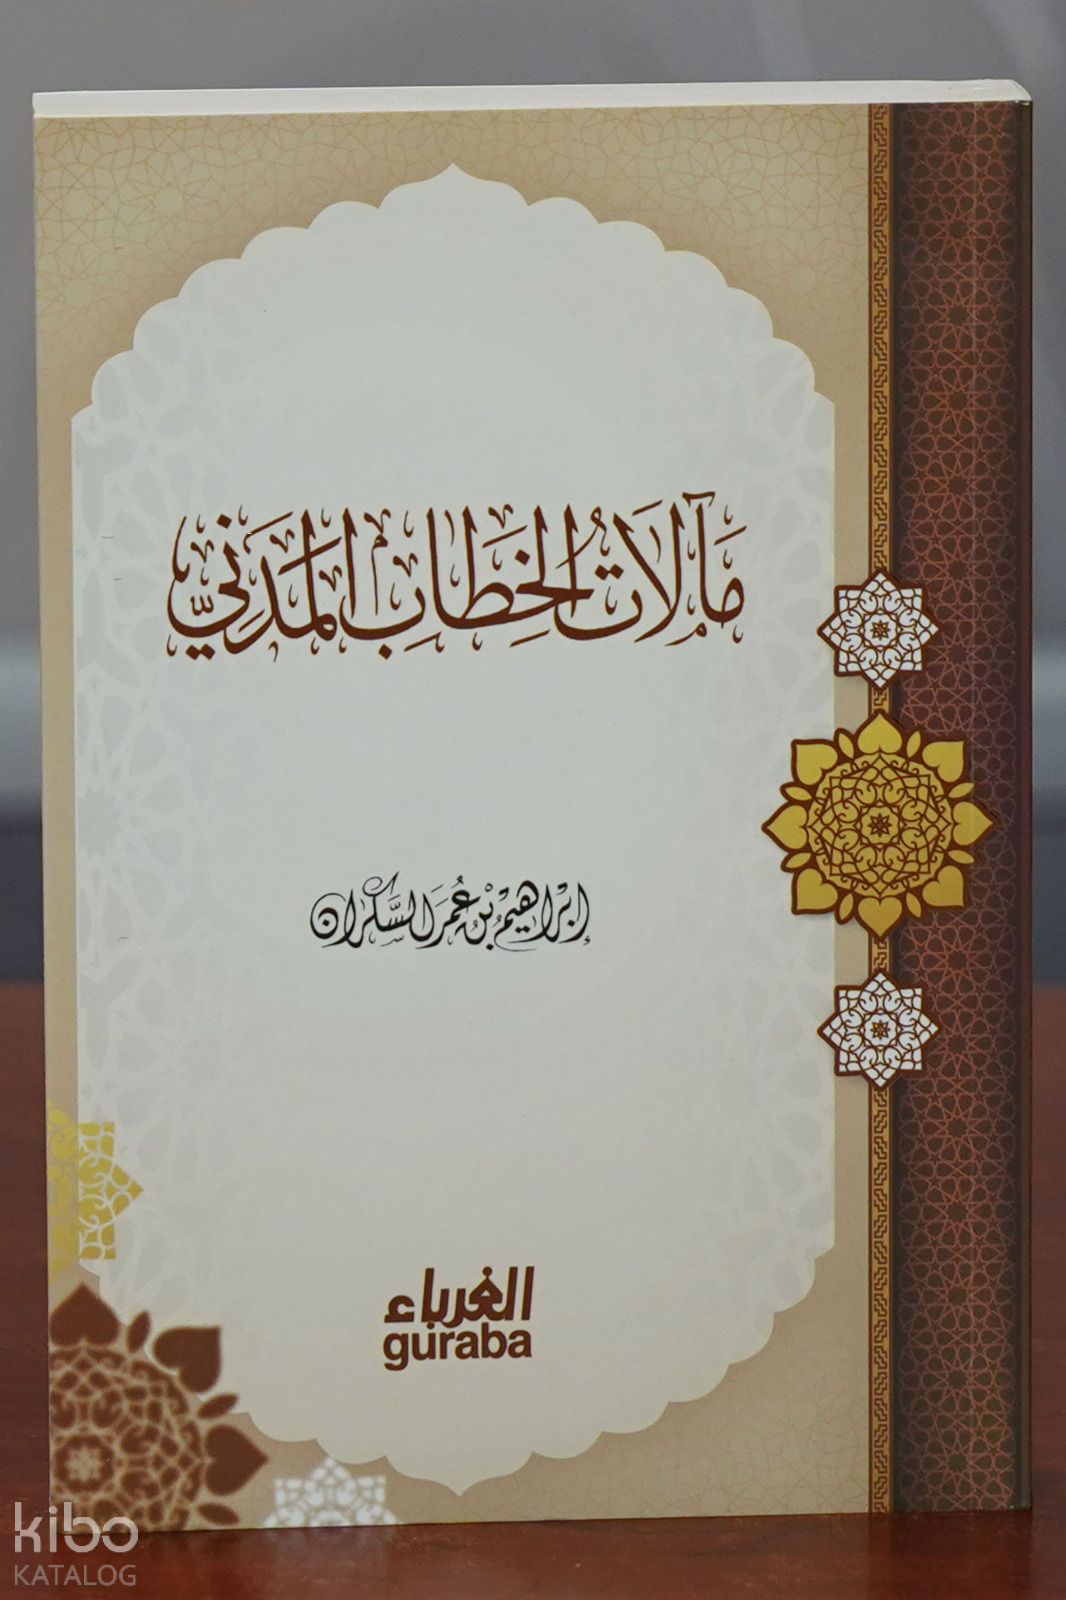 مَآلَاتُ الخِطَابِ المَدَنِيِّ
إبْرَاهِيْمُ بْنُ عُمَرَ السَّكْرَان
الغرباء
guraba
kibo
KATALOG